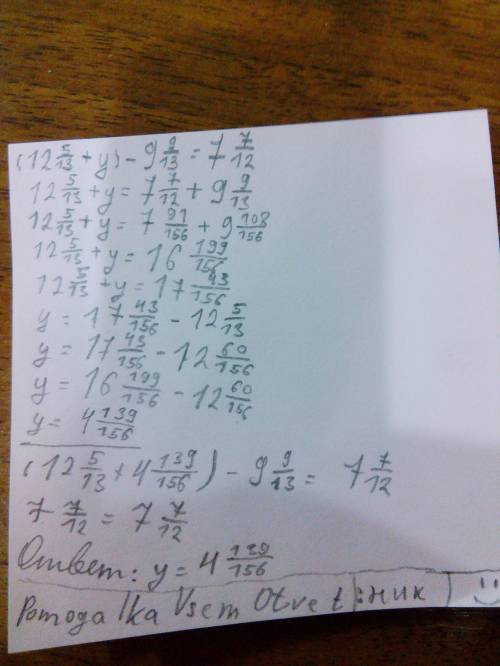 (12 5/13 + y) - 9 9/13 = 7 7/12
12 5/13 + y = 7 7/12 + 9 9/13
12 5/13 + y = 7 91/156 + 9 108/156
12 5/13 + y = 16 199/156
12 5/13 + y = 17 43/156
y = 17 43/156 - 12 5/13
y = 17 43/156 - 12 60/156
y = 16 199/156 - 12 60/156
y = 4 139/156
(12 5/13 + 4 139/156) - 9 9/13 = 7 7/12
7 7/12 = 7 7/12
Ответ: y = 4 139/156
Pomogalka Vsem Otvet:ник